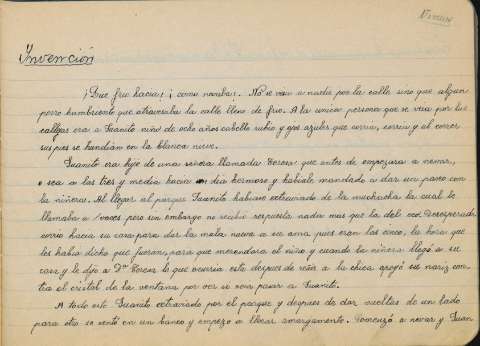 Invención
¡Que frio hacia! ¡como nevaba! No se veia a nadie por la calle sino que algun
perro hambriento que atravesaba la calle lleno de frio. A la unica persona que se veia por las
calles era a Juanito niño de ocho años cabello rubio y ojos azules que corria, corria y al correr
sus pies se hundian en la blanca nieve.
Juanito era hijo de una señora llamada Teresa que antes de empezara a nevar,
o sea a las tres y media hacia un dia hermoso y habiale mandado a dar un paseo con
la niñera. Al llegar al parque Juanito habiase extraviado de la muchacha la cual le
llamaba a voces pero sin embargo no recibio respuesta nada mas que la del eco. Desesperada
corrio hacia su casa para dar la mala nueva a su ama pues eran las cinco, la hora que
les habia dicho que fueran, para que merendara el niño y cuando la niñera llegó a su
casa y le dijo a Dª Teresa lo que ocurria esta despues de reñir a la chica apoyó su nariz con-
tra el cristal de la ventana por ver si veia pasar a Juanito.
A todo esto Juanito extraviado por el parque y despues de dar vueltas de un lado
para otro se sentó en un banco y empezo a llorar amargamente. Comenzó a nevar y Juan